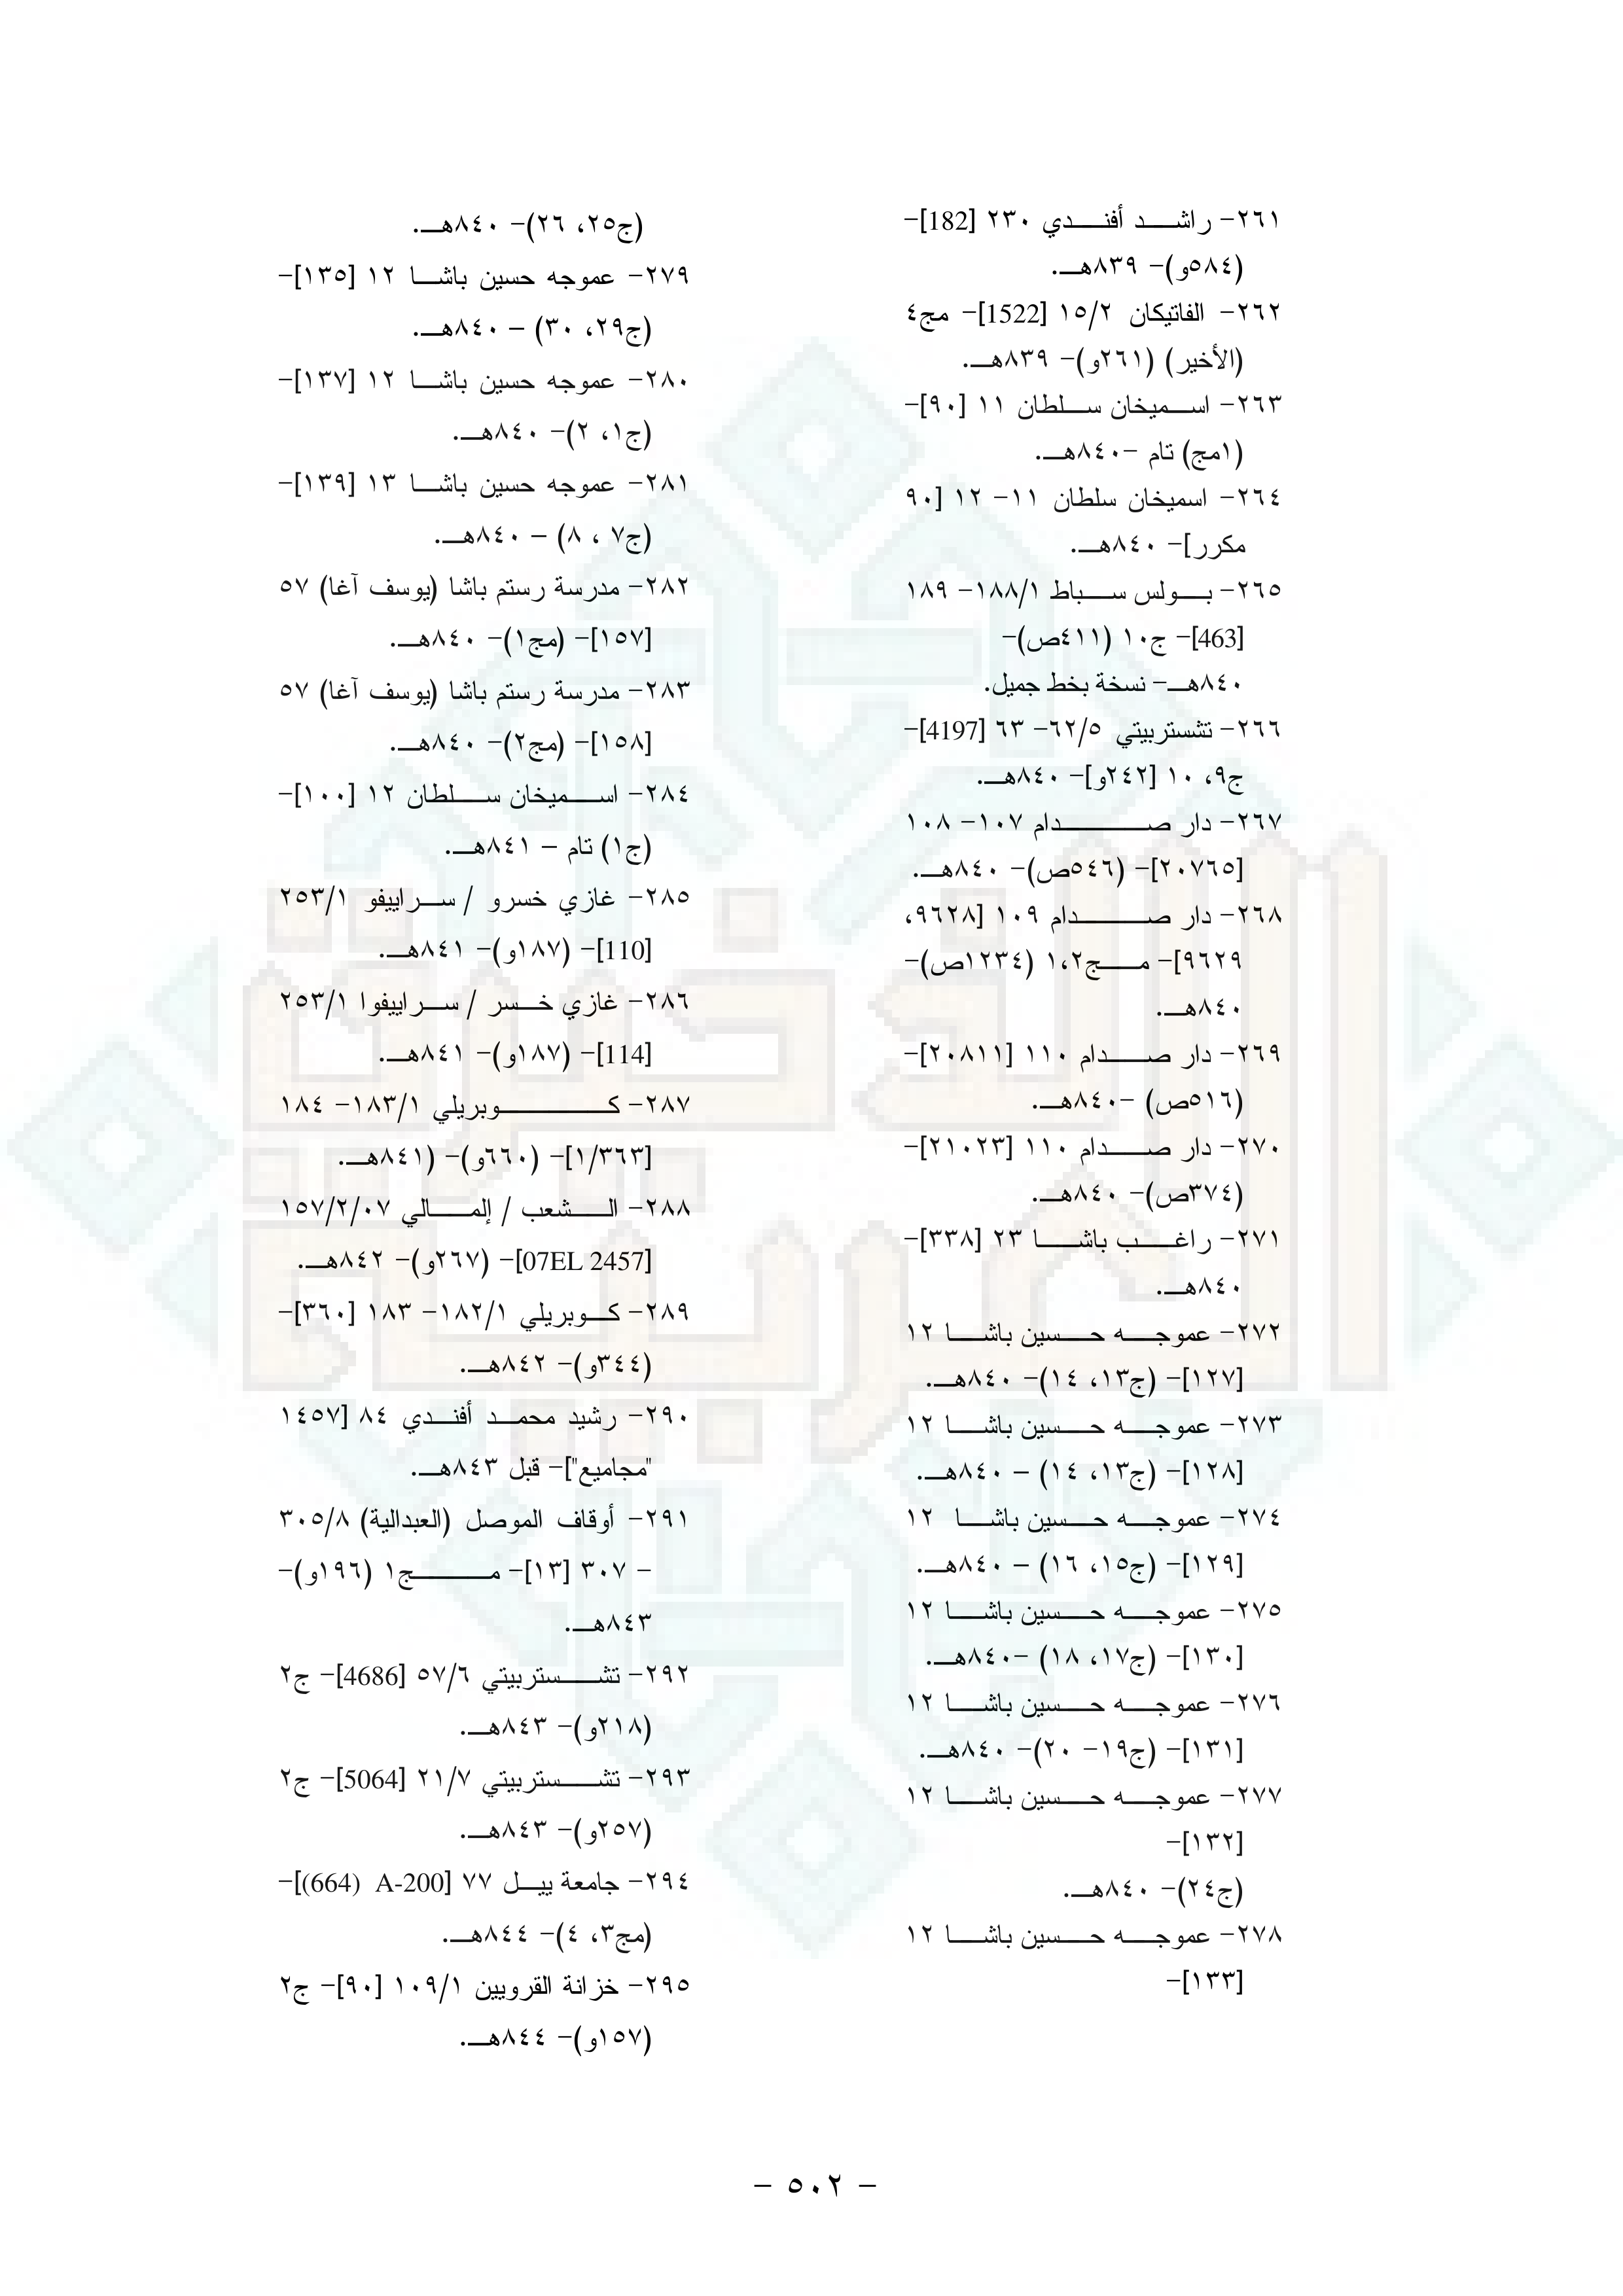 ٢٦١- راشد أفندي ٢٣٠ [182]-
(٥٨٤و)- ٨٣٩هـ.
٢٦٢- الفاتيكان ١٥/٢ [1522]- مج٤
(الأخير) (٢٦١و)- ٨٣٩هـ.
٢٦٣- اسميخان سلطان ١١ [٩٠]-
(١مج) تام -٨٤٠هـ.
٢٦٤- اسميخان سلطان ١١- ١٢ [٩٠
مكرر]- ٨٤٠هـ.
٢٦٥- بولس سباط ١٨٨/١- ١٨٩
[463]- ج١٠ (٤١١ص)-
٨٤٠هـ- نسخة بخط جميل.
٢٦٦- تشستربيتي ٦٢/٥- ٦٣ [4197]-
ج٩، ١٠ [٢٤٢و]- ٨٤٠هـ.
٢٦٧- دار صدام ١٠٧- ١٠٨
[٢٠٧٦٥]- (٥٤٦ص)- ٨٤٠هـ.
٢٦٨- دار صدام ١٠٩ [٩٦٢٨،
٩٦٢٩]- مج١،٢ (١٢٣٤ص)-
٨٤٠هـ.
٢٦٩- دار صدام ١١٠ [٢٠٨١١]-
(٥١٦ص) -٨٤٠هـ.
٢٧٠- دار صدام ١١٠ [٢١٠٢٣]-
(٣٧٤ص)- ٨٤٠هـ.
٢٧١- راغب باشا ٢٣ [٣٣٨]-
٨٤٠هـ.
٢٧٢- عموجه حسين باشا ١٢
[١٢٧]- (ج١٣، ١٤)- ٨٤٠هـ.
٢٧٣- عموجه حسين باشا ١٢
[١٢٨]- (ج١٣، ١٤) - ٨٤٠هـ.
٢٧٤- عموجه حسين باشا ١٢
[١٢٩]- (ج١٥، ١٦) - ٨٤٠هـ.
٢٧٥- عموجه حسين باشا ١٢
[١٣٠]- (ج١٧، ١٨) -٨٤٠هـ.
٢٧٦- عموجه حسين باشا ١٢
[١٣١]- (ج١٩- ٢٠)- ٨٤٠هـ.
٢٧٧- عموجه حسين باشا ١٢
[١٣٢]-
(ج٢٤)- ٨٤٠هـ.
٢٧٨- عموجه حسين باشا ١٢
[١٣٣]-
(ج٢٥، ٢٦)- ٨٤٠هـ.
٢٧٩- عموجه حسين باشا ١٢ [١٣٥]-
(ج٢٩، ٣٠) - ٨٤٠هـ.
٢٨٠- عموجه حسين باشا ١٢ [١٣٧]-
(ج١، ٢)- ٨٤٠هـ.
٢٨١- عموجه حسين باشا ١٣ [١٣٩]-
(ج٧ ، ٨) - ٨٤٠هـ.
٢٨٢- مدرسة رستم باشا (يوسف آغا) ٥٧
[١٥٧]- (مج١)- ٨٤٠هـ.
٢٨٣- مدرسة رستم باشا (يوسف آغا) ٥٧
[١٥٨]- (مج٢)- ٨٤٠هـ.
٢٨٤- اسميخان سلطان ١٢ [١٠٠]-
(ج١) تام - ٨٤١هـ.
٢٨٥- غازي خسرو / سراييفو ٢٥٣/١
[110]- (١٨٧و)- ٨٤١هـ.
٢٨٦- غازي خسر / سراييفوا ٢٥٣/١
[114]- (١٨٧و)- ٨٤١هـ.
٢٨٧- كوبريلي ١٨٣/١- ١٨٤
[١/٣٦٣]- (٦٦٠و)- (٨٤١هـ.
٢٨٨- الشعب / إلمالي ١٥٧/٢/٠٧
[07EL 2457]- (٢٦٧و)- ٨٤٢هـ.
٢٨٩- كوبريلي ١٨٢/١- ١٨٣ [٣٦٠]-
(٣٤٤و)- ٨٤٢هـ.
٢٩٠- رشيد محمد أفندي ٨٤ [١٤٥٧
"مجاميع"]- قبل ٨٤٣هـ.
٢٩١- أوقاف الموصل (العبدالية) ٣٠٥/٨
- ٣٠٧ [١٣]- مج١ (١٩٦و)-
٨٤٣هـ.
٢٩٢- تشستربيتي ٥٧/٦ [4686]- ج٢
(٢١٨و)- ٨٤٣هـ.
٢٩٣- تشستربيتي ٢١/٧ [5064]- ج٢
(٢٥٧و)- ٨٤٣هـ.
٢٩٤- جامعة ييل ٧٧ [A-200 (664)]-
(مج٣، ٤)- ٨٤٤هـ.
٢٩٥- خزانة القرويين ١٠٩/١ [٩٠]- ج٢
(١٥٧و)- ٨٤٤هـ.
- ٥٠٢ -